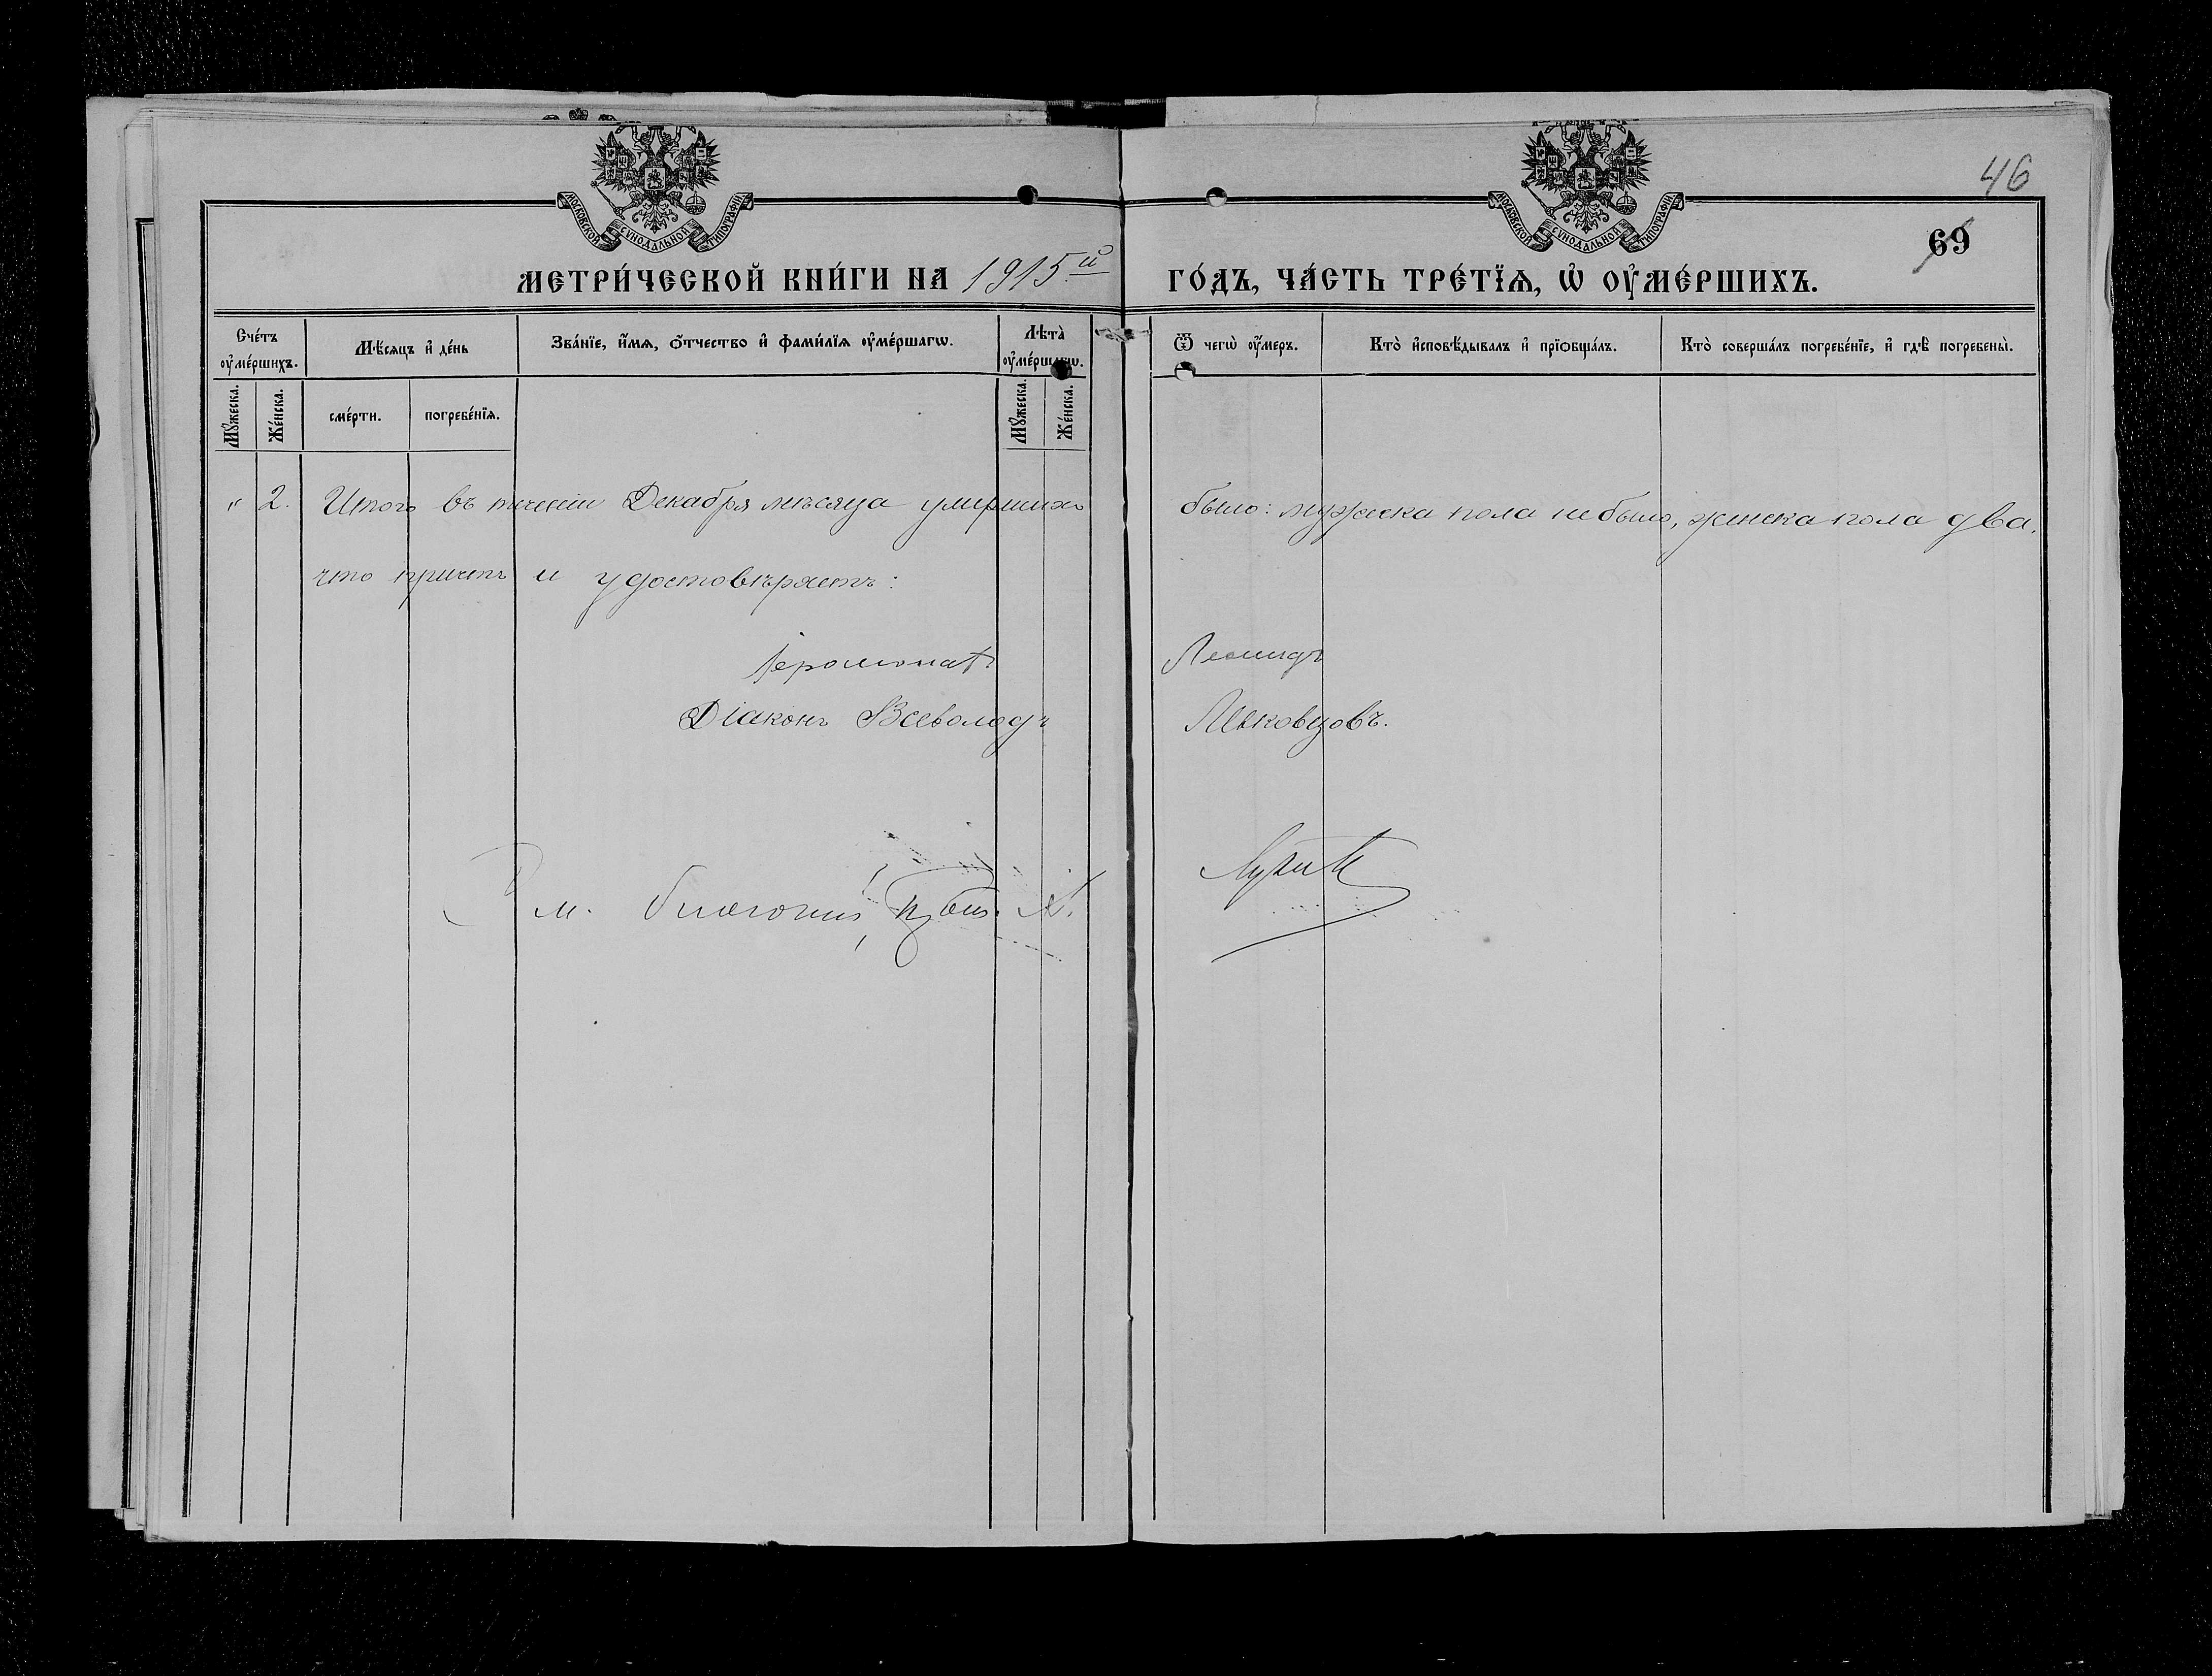 46
69
МОСКОВСКОЙ СУНОДАЛЬНОЙ ТИПОГРАФІИ
МОСКОВСКОЙ СУНОДАЛЬНОЙ ТИПОГРАФІИ
МЕТРИ́ЧЕСКОЙ КНИ́ГИ НА 1915й ГО́ДЪ, ЧА́СТЬ ТРЕ́ТЇѦ, Ѡ҆ ОУ҆МЕ́РШИХЪ.
Сче́тъ оу҆ме́ршихъ.
Мѣ́сяцъ и҆ де́нь
Зва́нїе, и҆́мѧ, ѻ҆́тчество и҆ фами́лїѧ оу҆ме́ршагѡ.
Лѣта̀ оу҆ме́ршагѡ.
Ѿ чегѡ̀ оу҆́меръ.
Кто̀ и҆сповѣ́дывалъ и҆ прїѻбща́лъ.
Кто̀ соверша́лъ погребе́нїе, и҆ гдѣ̀ погребены̀.
Мꙋ́жеска.
Же́нска.
сме́рти.
погребе́нїѧ.
Мꙋ́жеска.
Же́нска.
" 2. Итого въ теченіи Декабря мѣсяца умершихъ было: мужеска пола не было, женска пола два,
что причтъ и удостовѣряетъ:
Іеромонахъ Леонидъ
Діаконъ Всеволодъ Льковцовъ.